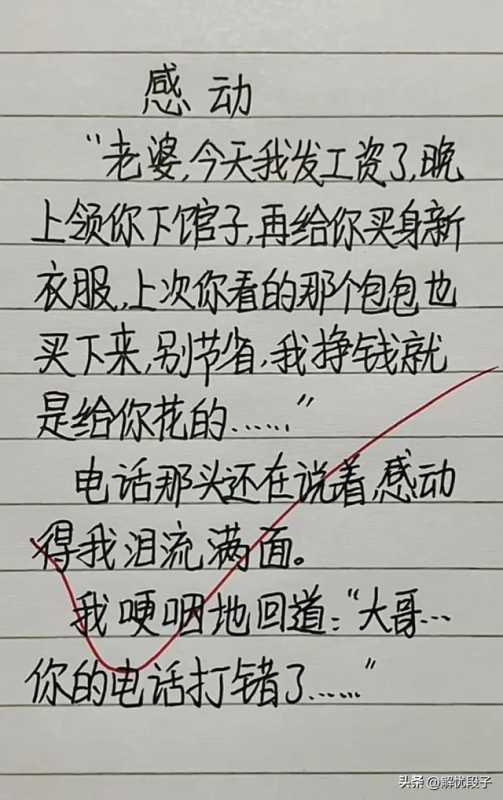 感动
“老婆,今天我发工资了,晚
上领你下馆子,再给你买身新
衣服,上次你看的那个包包也
买下来,别节省,我挣钱就
是给你花的……”
电话那头还在说着,感动
得我泪流满面。
我哽咽地回道:“大哥…
你的电话打错了……”
头条 @解忧段子